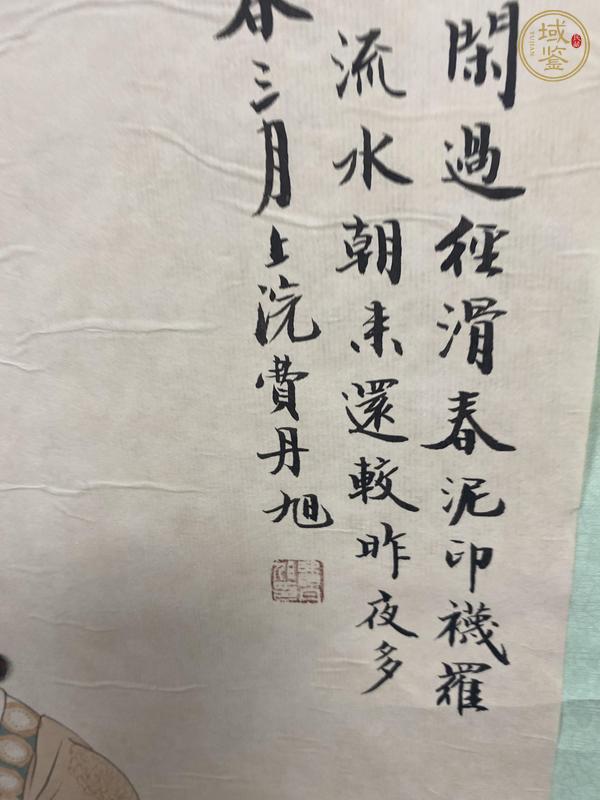 閑過徑滑春泥印襪羅
流水朝来還較昨夜多
春三月上浣費丹旭
域鉴
YUJIAN